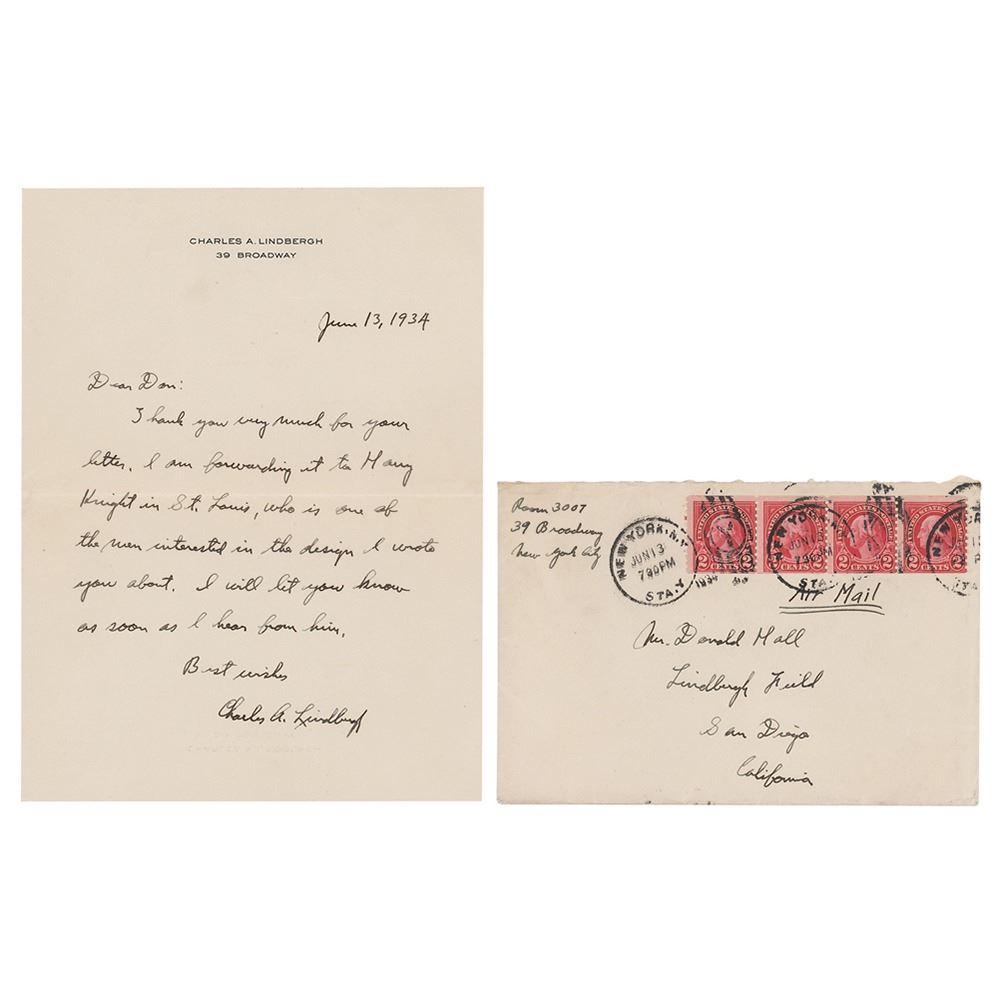 CHARLES A. LINDBERGH
39 BROADWAY
June 13, 1934
Dear Don:
Thank you very much for your
letter. I am forwarding it to Harry
Knight in St. Louis, who is one of
the men interested in the design I wrote
you about. I will let you know
as soon as I hear from him.
Best wishes
Charles A. Lindbergh
Room 3007
39 Broadway
New York City
NEW YORK, N.Y.
JUN 13
7 30 PM
1934
STA. Y
2 CENTS 2
2 CENTS 2
2 CENTS 2
2 CENTS 2
NEW YORK, N.Y.
JUN 1
7 30 PM
STA.
Air Mail
Mr. Donald Hall
Lindbergh Field
San Diego
California